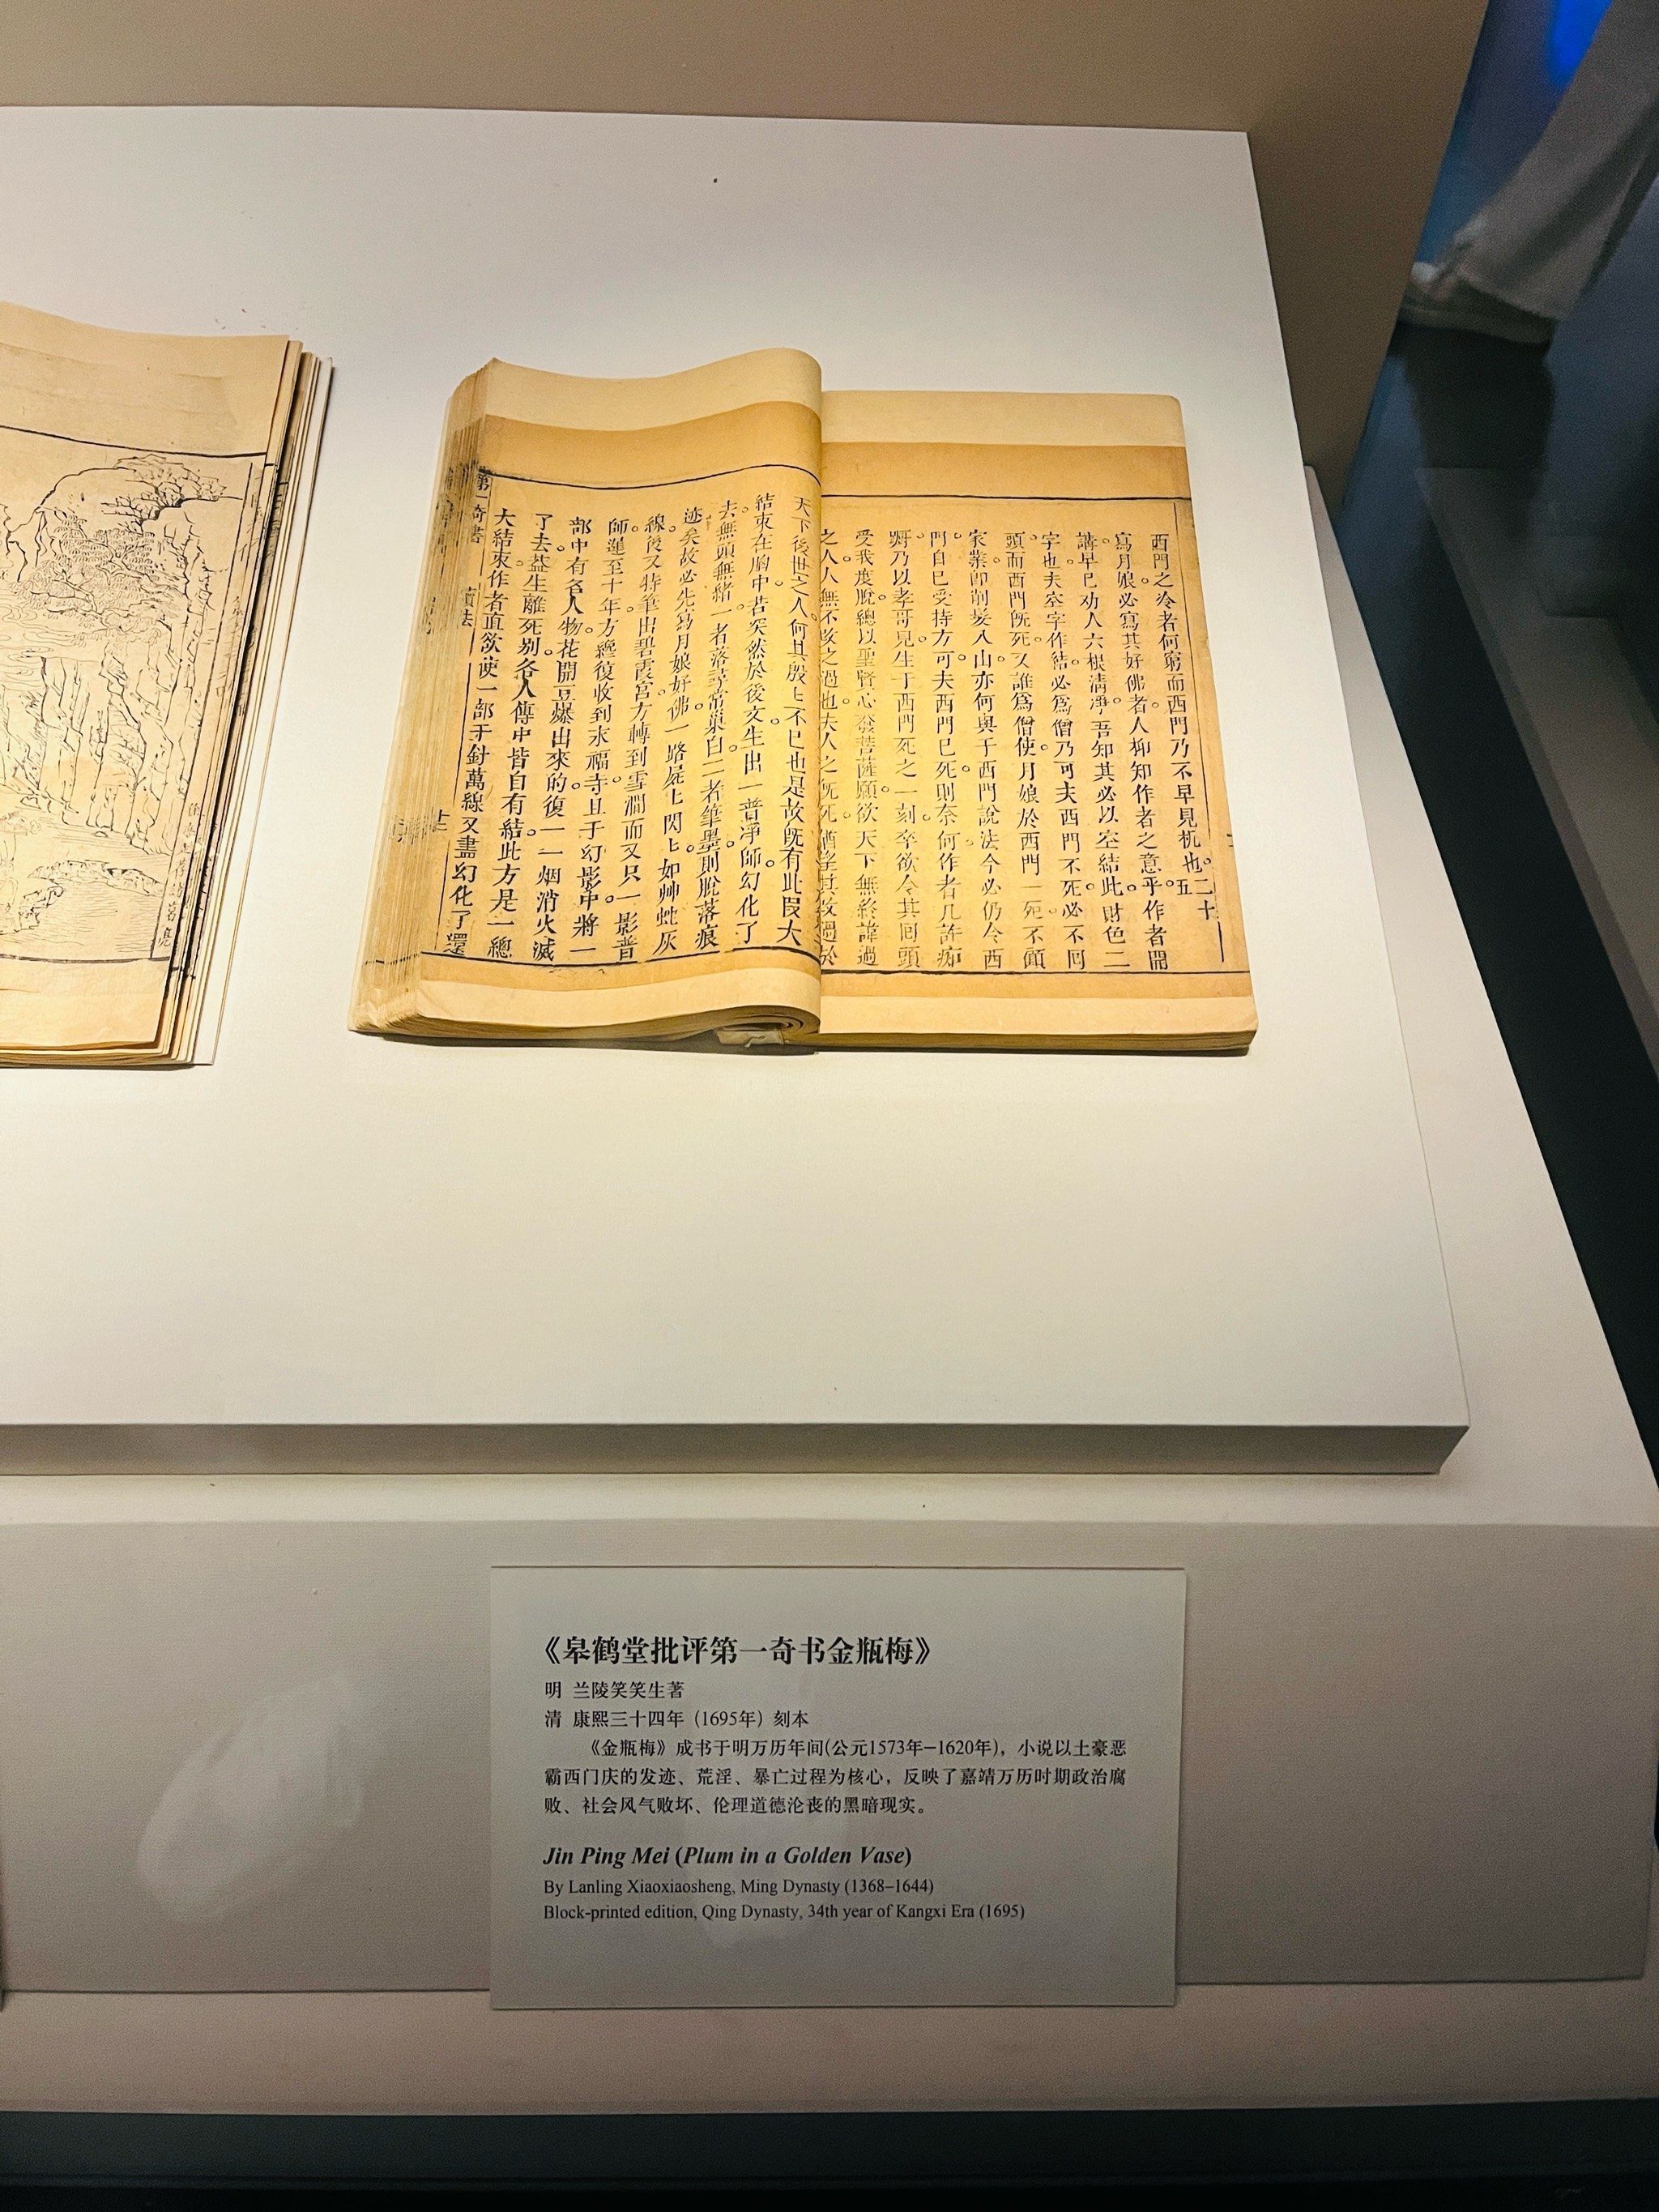 西門之冷者何窮而西門乃不早見机也。二十五
寫月娘。必寫其好佛者。人抑知作者之意乎。作者開
講。早已劝人六根清凈。吾知其必以空結此。財色二
字也。夫空字作結。必爲僧乃可。夫西門不死。必不囘
頭。而西門既死。又誰爲僧。使月娘於西門一死。不顧
家業。即削髮入山。亦何與于西門說法。今必仍令西
門自已受持方可。夫西門已死。則奈何。作者几許踟
蹰。乃以孝哥兒生于西門死之一刻。卒欲令其回頭
受我度脫。總以聖賢心。發菩薩願。欲天下無終諱過
之人。人無不改之過也。夫人之既死。猶望其改過於
天下後世之人。何其殷〻不已也。是故既有此叚大
結束在胸中。若突然於後文生出一普凈師幻化了
去。無頭無緒。一者落尋常窠臼。二者筆墨則脫落痕
迹矣。故必先寫月娘好佛。一路屍〻閃〻。如艸蛇灰
線。後又特筆出碧霞宮。方轉到雪澗。而又只一影普
師。遲至十年。方纔復收到永福寺。且于幻影中。將一
部中有名人物。花開豆爆出來的。復一一烟消火滅
了去。葢生離死别。各人傳中皆自有結。此方是一總
大結束。作者直欲使一部千針萬線。又盡幻化了還
第一奇書
讀法
《皋鹤堂批评第一奇书金瓶梅》
明 兰陵笑笑生著
清 康熙三十四年（1695年）刻本
《金瓶梅》成书于明万历年间(公元1573年—1620年)，小说以土豪恶
霸西门庆的发迹、荒淫、暴亡过程为核心，反映了嘉靖万历时期政治腐
败、社会风气败坏、伦理道德沦丧的黑暗现实。
Jin Ping Mei (Plum in a Golden Vase)
By Lanling Xiaoxiaosheng, Ming Dynasty (1368–1644)
Block-printed edition, Qing Dynasty, 34th year of Kangxi Era (1695)